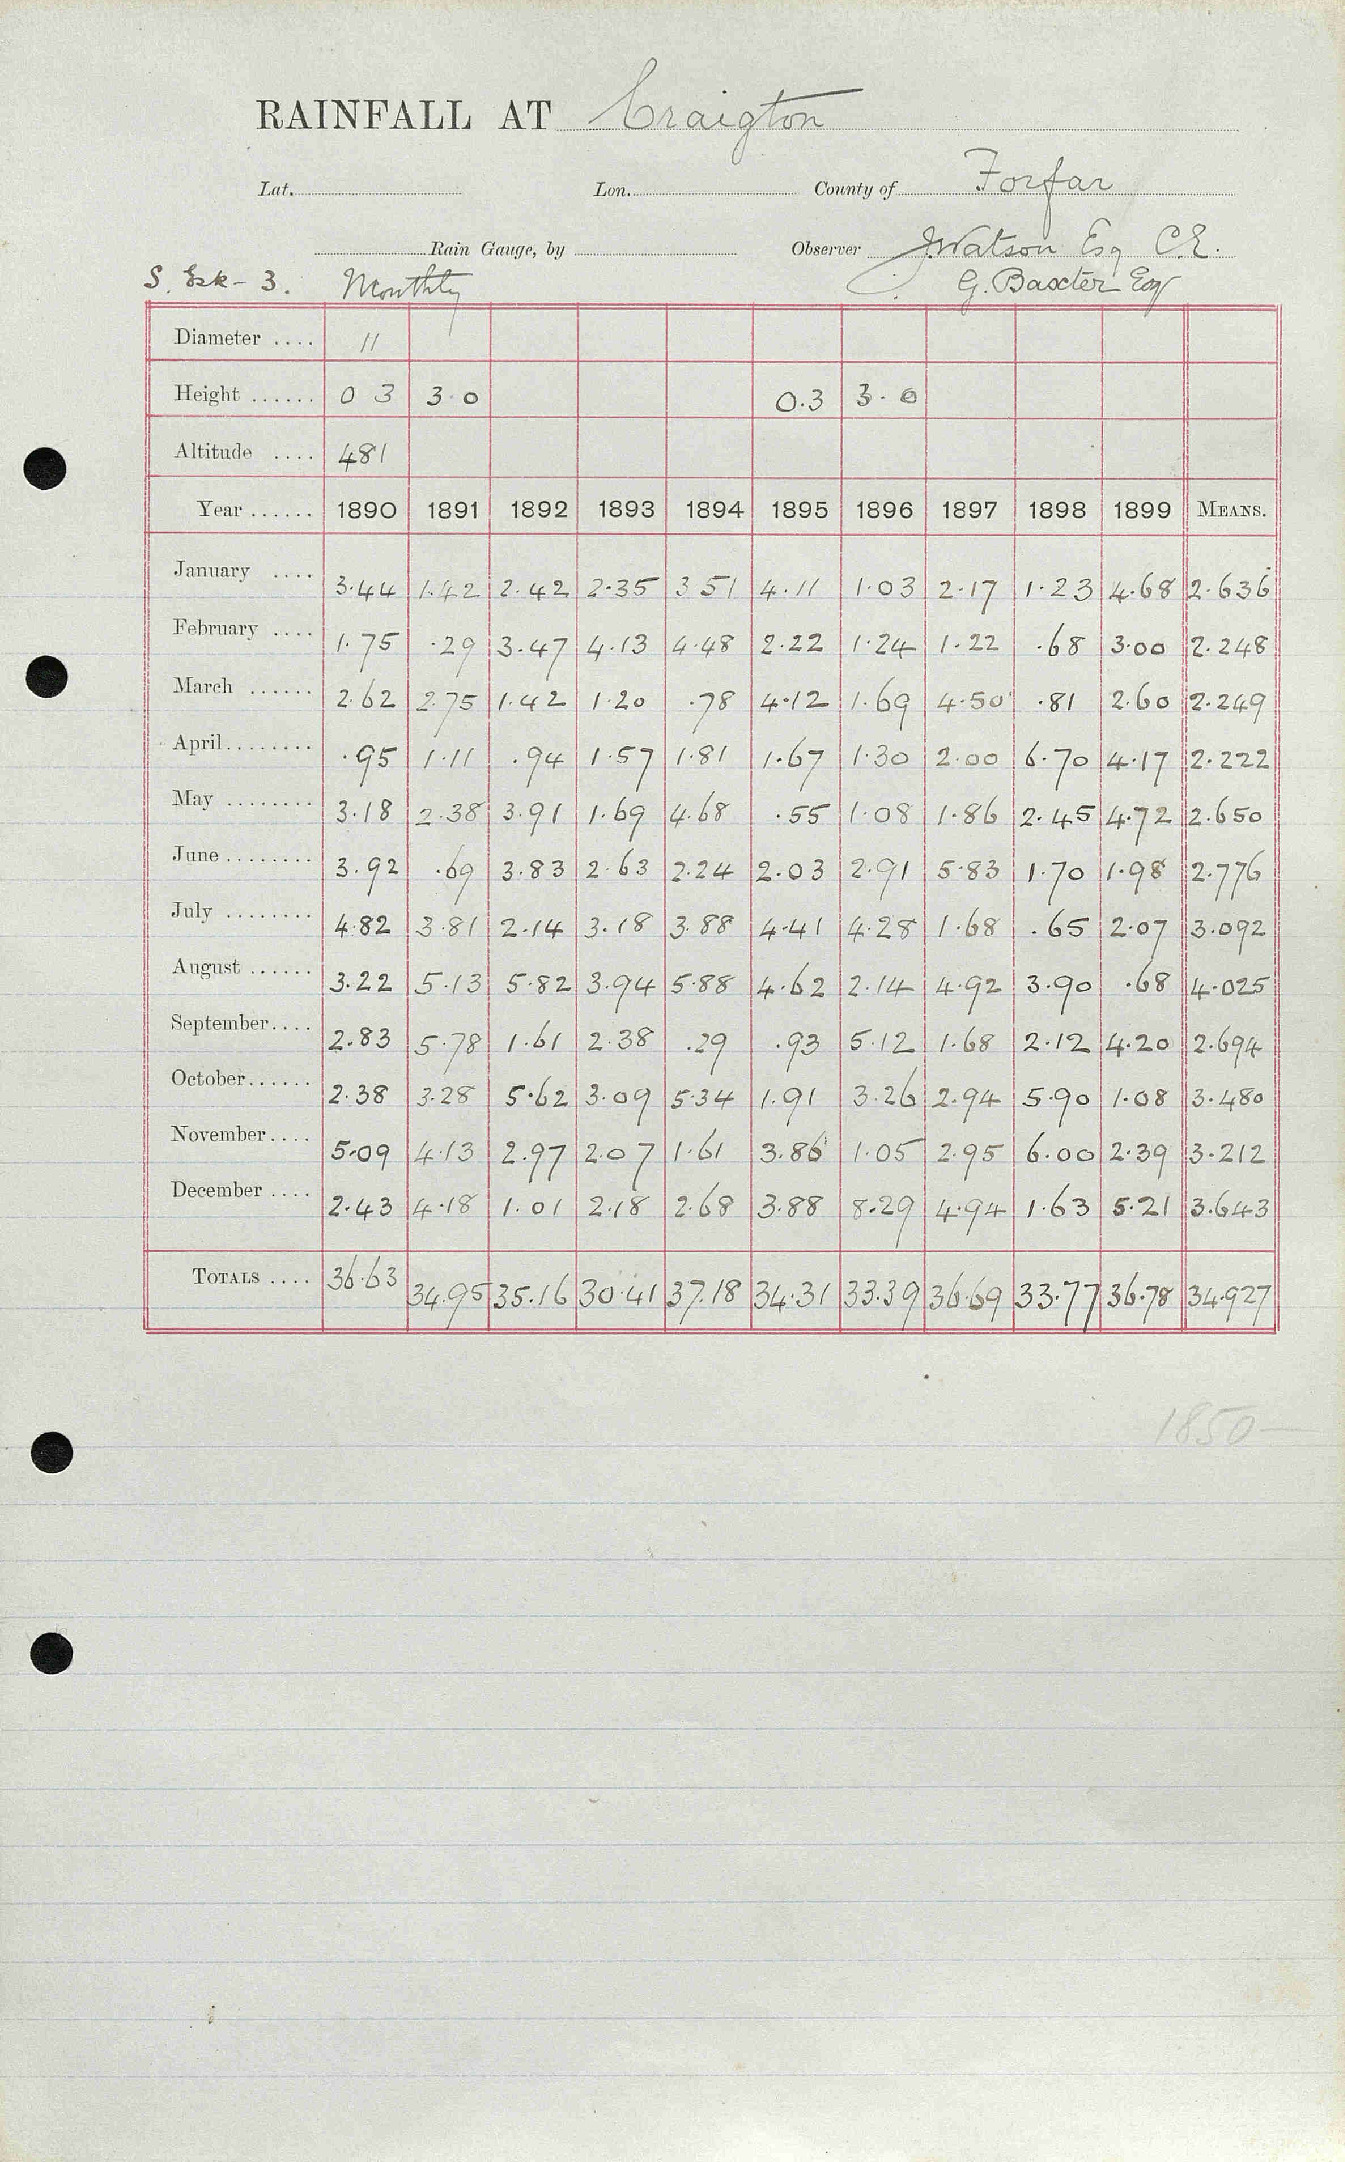 RAINFALL AT Craigton
Lat. Lon. County of Forfar
Rain Gauge, by Observer J. Watson Esq C.E.
S. Esk - 3. Monthly G. Baxter Esq
Diameter .... 11
Height ...... 0 3 3.0 0.3 3.0
Altitude .... 481
Year ...... 1890 1891 1892 1893 1894 1895 1896 1897 1898 1899 MEANS.
January .... 3.44 1.42 2.42 2.35 3 51 4.11 1.03 2.17 1.23 4.68 2.636
February .... 1.75 .29 3.47 4.13 4.48 2.22 1.24 1.22 .68 3.00 2.248
March ...... 2.62 2.75 1.42 1.20 .78 4.12 1.69 4.50 .81 2.60 2.249
April........ .95 1.11 .94 1.57 1.81 1.67 1.30 2.00 6.70 4.17 2.222
May ........ 3.18 2.38 3.91 1.69 4.68 .55 1.08 1.86 2.45 4.72 2.650
June ........ 3.92 .69 3.83 2.63 2.24 2.03 2.91 5.83 1.70 1.98 2.776
July ........ 4.82 3.81 2.14 3.18 3.88 4.41 4.28 1.68 .65 2.07 3.092
August ...... 3.22 5.13 5.82 3.94 5.88 4.62 2.14 4.92 3.90 .68 4.025
September.... 2.83 5.78 1.61 2.38 .29 .93 5.12 1.68 2.12 4.20 2.694
October...... 2.38 3.28 5.62 3.09 5.34 1.91 3.26 2.94 5.90 1.08 3.480
November.... 5.09 4.13 2.97 2.07 1.61 3.86 1.05 2.95 6.00 2.39 3.212
December .... 2.43 4.18 1.01 2.18 2.68 3.88 8.29 4.94 1.63 5.21 3.643
TOTALS .... 36.63 34.95 35.16 30.41 37.18 34.31 33.39 36.69 33.77 36.78 34.927
1850—